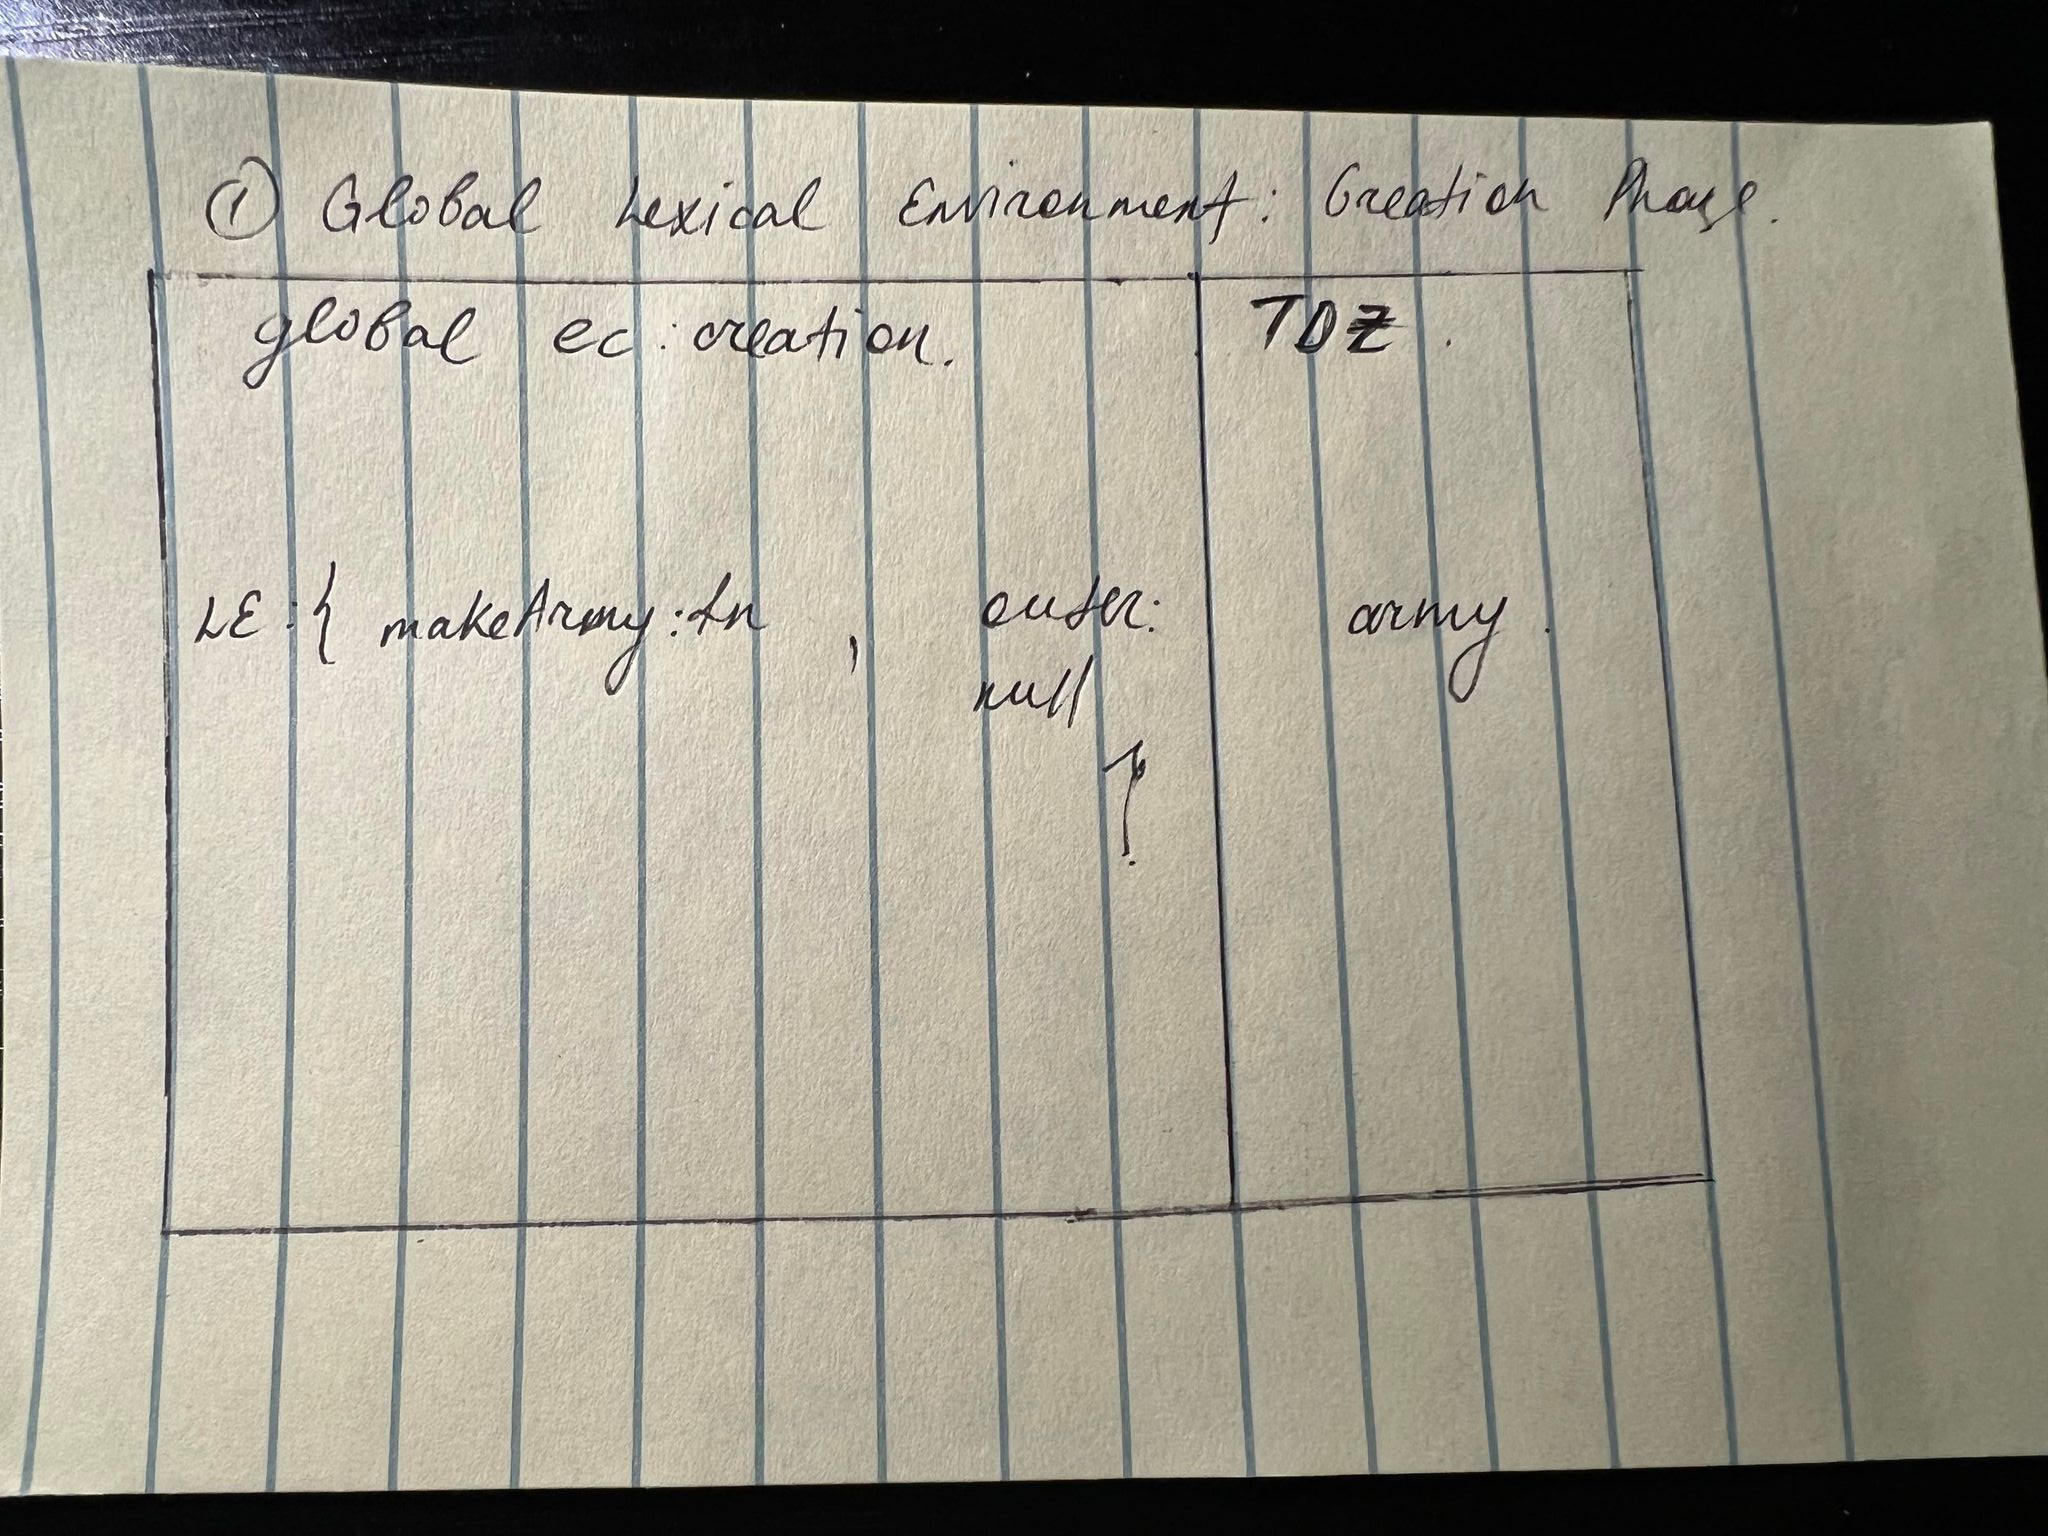 ① Global Lexical Environment: Creation Phase.
global ec: creation.
TDZ.
LE: { makeArmy: fn , outer:
null
}
army.